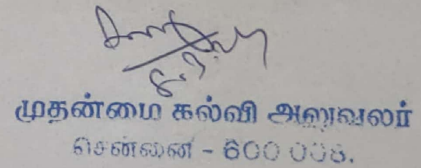 முதன்மை கல்வி அலுவலர்
சென்னை - 600 008.